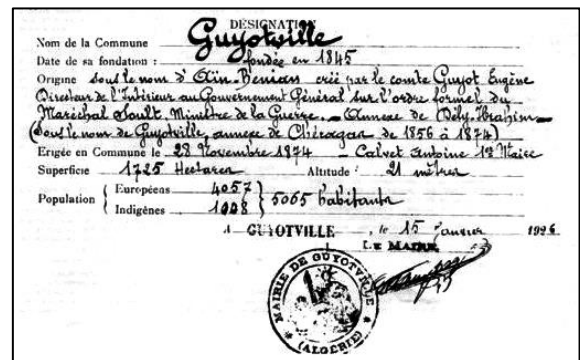 DÉSIGNATION
Nom de la Commune Guyotville
Date de sa fondation : fondée en 1845
Origine sous le nom d' Aïn-Benian créé par le comte Guyot Eugène
Directeur de l'Intérieur au Gouvernement Général sur l'ordre formel du
Maréchal Soult, Ministre de la Guerre. — Annexe de Dély-Ibrahim —
(Sous le nom de Guyotville, annexe de Chéragas de 1856 à 1874)
Erigée en Commune le 28 Novembre 1874 — Calvet Antoine 1er Maire
Superficie 1725 Hectares Altitude : 21 mètres
Population { Européens 4057 } 5065 habitants
Indigènes 1008
A GUYOTVILLE , le 15 Janvier 1926
LE MAIRE
MAIRIE DE GUYOTVILLE
(ALGÉRIE)